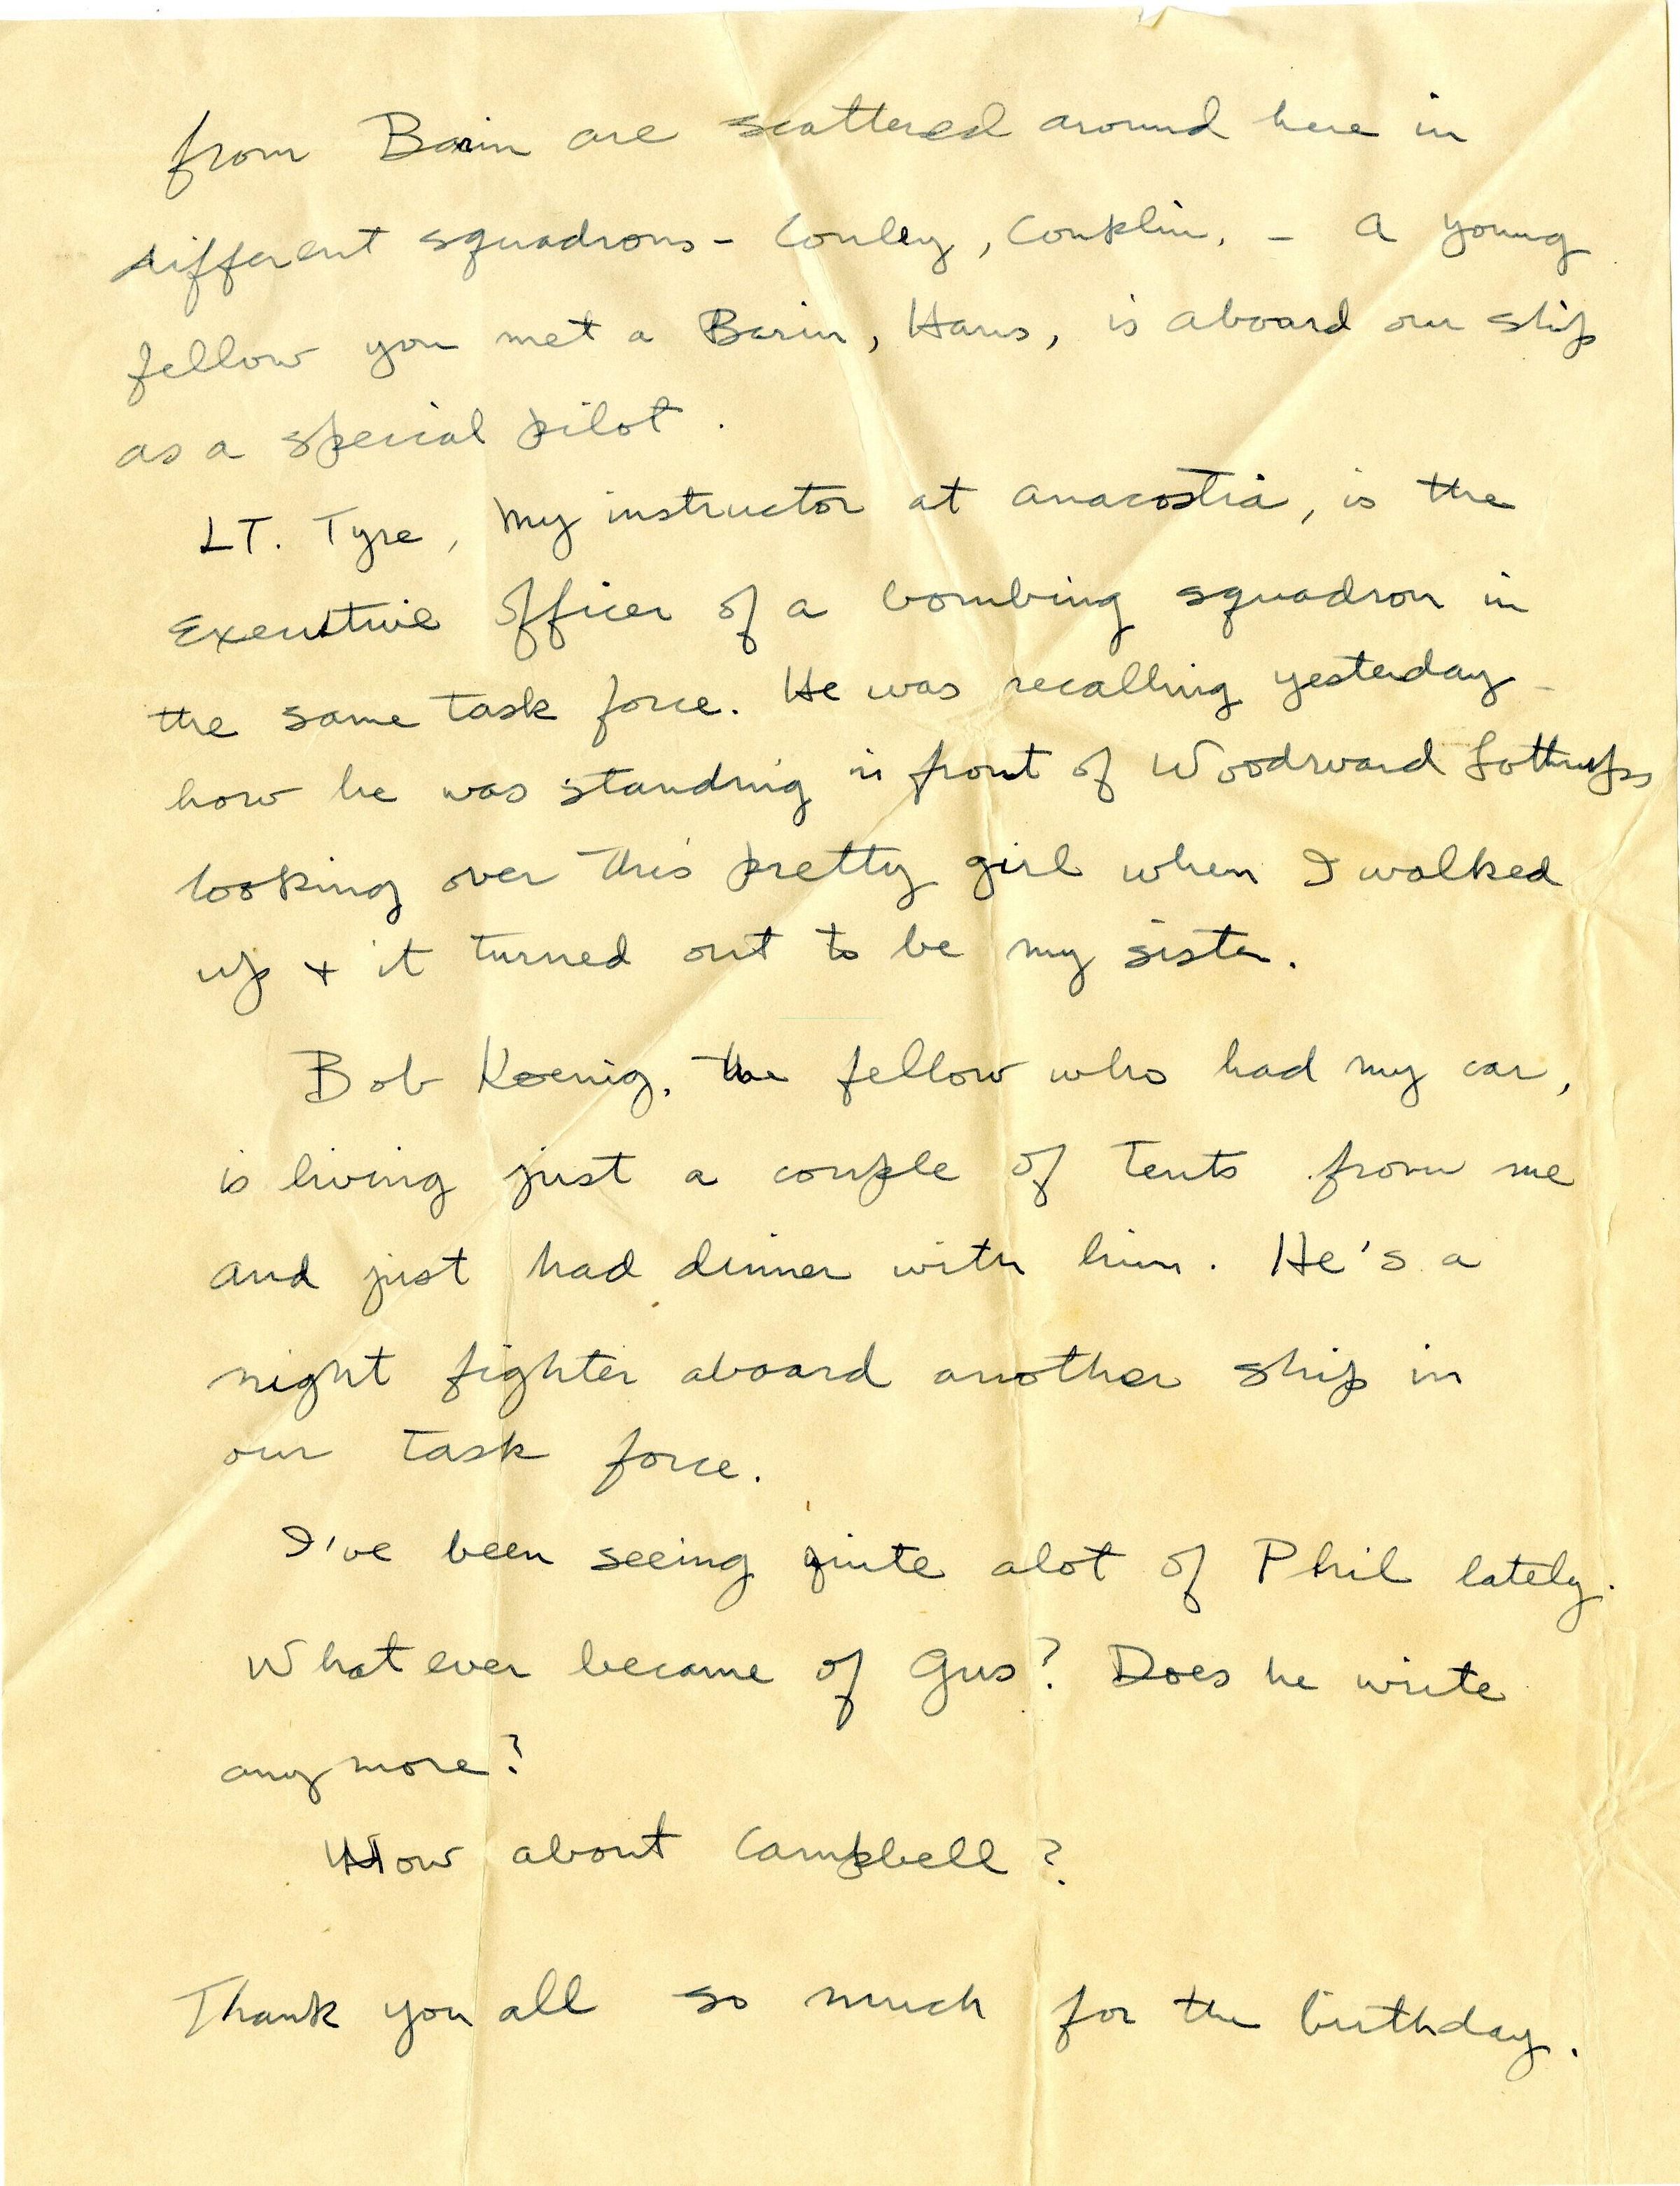 from Barin are scattered around here in
different squadrons - Conley, Conklin, - a young
fellow you met a Barin, Haws, is aboard our ship
as a special pilot.
LT. Tyre, my instructor at anacostia, is the
Executive officer of a bombing squadron in
the same task force. He was recalling yesterday -
how he was standing in front of Woodward Lothrups
looking over this pretty girl when I walked
up + it turned out to be my sister.
Bob Koenig, the fellow who had my car,
is living just a couple of tents from me
and just had dinner with him. He's a
night fighter aboard another ship in
our task force.
I've been seeing quite alot of Phil lately.
What ever became of Gus? Does he write
anymore?
How about Campbell?
Thank you all so much for the birthday.